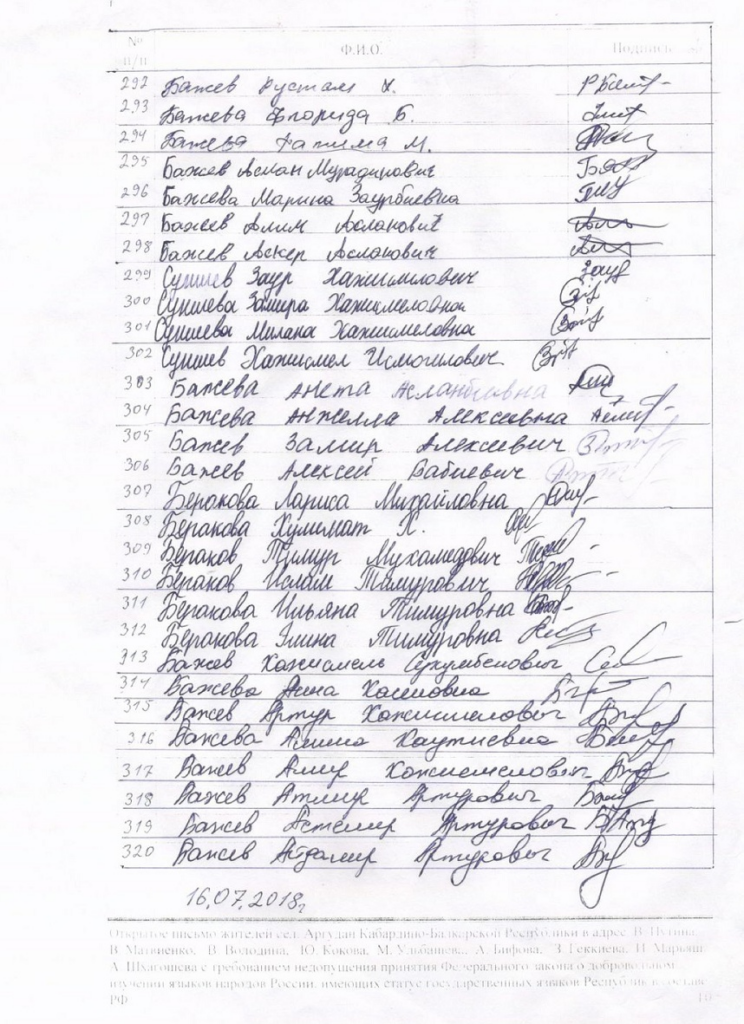 № п/п Ф.И.О. Подпись
292 Бажев Рустам Х.
293 Бажева Флорида Б.
294 Бажева Фатима М.
295 Бажев Аслан Мурадинович
296 Бажева Марина Заурбиевна
297 Бажев Алим Асланович
298 Бажев Аскер Асланович
299 Суншев Заур Хажисмелович
300 Суншева Замира Хажисмеловна
301 Суншева Милана Хажисмеловна
302 Суншев Хажисмел Исмагилович
303 Бажева Анета Асланбиевна
304 Бажева Анжелла Алексеевна
305 Бажев Замир Алексеевич
306 Бажев Алексей Бабиевич
307 Беракова Лариса Михайловна
308 Беракова Хулимат Х.
309 Бераков Тимур Мухамедович
310 Бераков Ислам Тимурович
311 Беракова Ильяна Тимуровна
312 Беракова Элина Тимуровна
313 Бажев Хажисмель
314 Бажева Анна Хасеновна
315 Бажев Артур Хажисмелович
316 Бажева Хаутиевна
317 Бажев Амир Хажисмелович
318 Бажев Атмир Артурович
319 Бажев Астемир Артурович
320 Бажев Айдамир Артурович
16.07.2018г
Открытое письмо жителей сел. Аргудан Кабардино-Балкарской Республики в адрес В. Путина,
В. Матвиенко, В. Володина, Ю. Кокова, М. Ульбашева, А. Бифова, З. Геккиева, И. Марьяш,
А. Шхагошева с требованием недопущения принятия Федерального закона о добровольном
изучении языков народов России, имеющих статус государственных языков Республик в составе
РФ 16